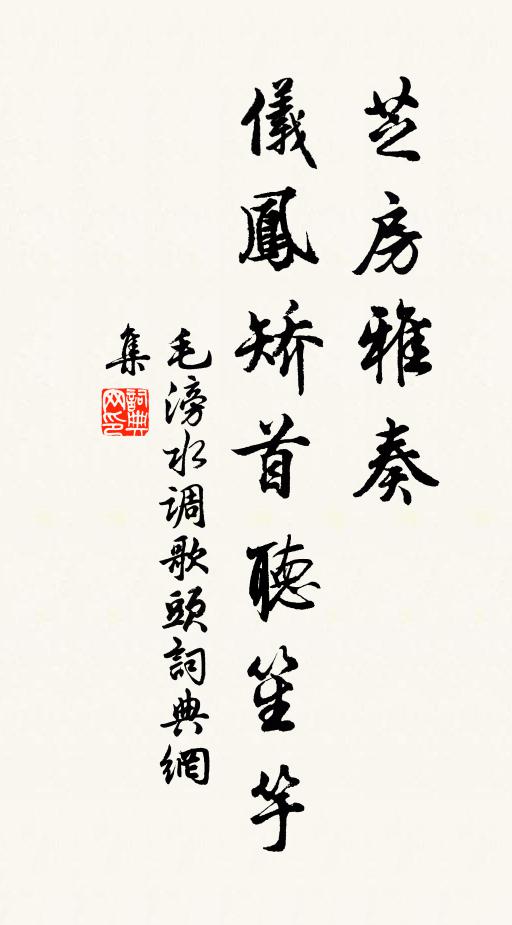 芝房雅奏
儀鳳矯首聽笙竽
毛滂水調歌頭詞典網
集
詞典
网印